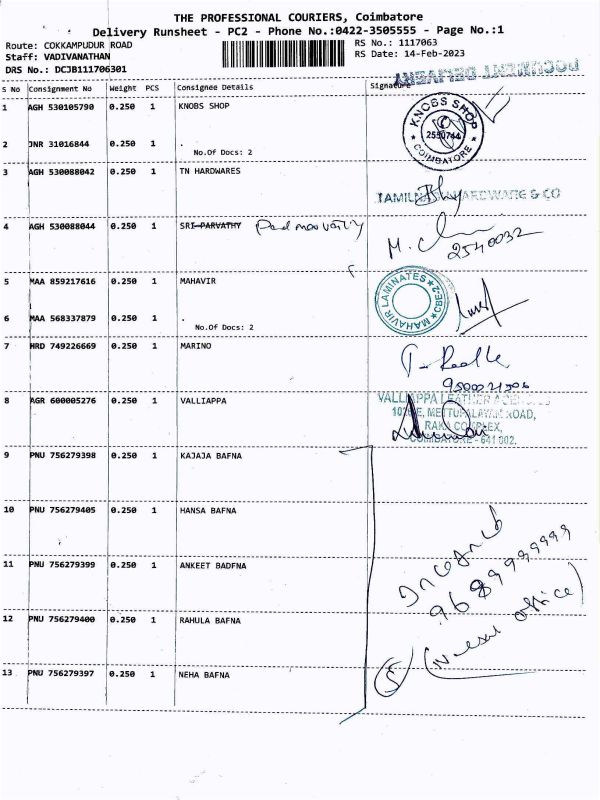 THE PROFESSIONAL COURIERS, Coimbatore
Delivery Runsheet - PC2 - Phone No.:0422-3505555 - Page No.:1
Route: COKKAMPUDUR ROAD RS No.: 1117063
Staff: VADIVANATHAN RS Date: 14-Feb-2023
DRS No.: DCJB111706301
DOCUMENT DELIVERY
S No Consignment No Weight PCS Consignee Details Signature
1 AGH 530105790 0.250 1 KNOBS SHOP
KNOBS SHOP
2550744
COIMBATORE
2 JNR 31016844 0.250 1 .
No.Of Docs: 2
3 AGH 530088042 0.250 1 TN HARDWARES
TAMILNADU HARDWARE & CO
4 AGH 530088044 0.250 1 SRI PARVATHY
2540032
5 MAA 859217616 0.250 1 MAHAVIR
MAHAVIR LAMINATES CBE-2
6 MAA 568337879 0.250 1 .
No.Of Docs: 2
7 HRD 749226669 0.250 1 MARINO
8 AGR 600005276 0.250 1 VALLIAPPA
VALLIAPPA LEATHER AGENCIES
METTUPALAYAM ROAD,
RAKA COMPLEX,
COIMBATORE - 641 002.
9 PNU 756279398 0.250 1 KAJAJA BAFNA
10 PNU 756279405 0.250 1 HANSA BAFNA
11 PNU 756279399 0.250 1 ANKEET BADFNA
12 PNU 756279400 0.250 1 RAHULA BAFNA
13 PNU 756279397 0.250 1 NEHA BAFNA
9689999999
office)
5